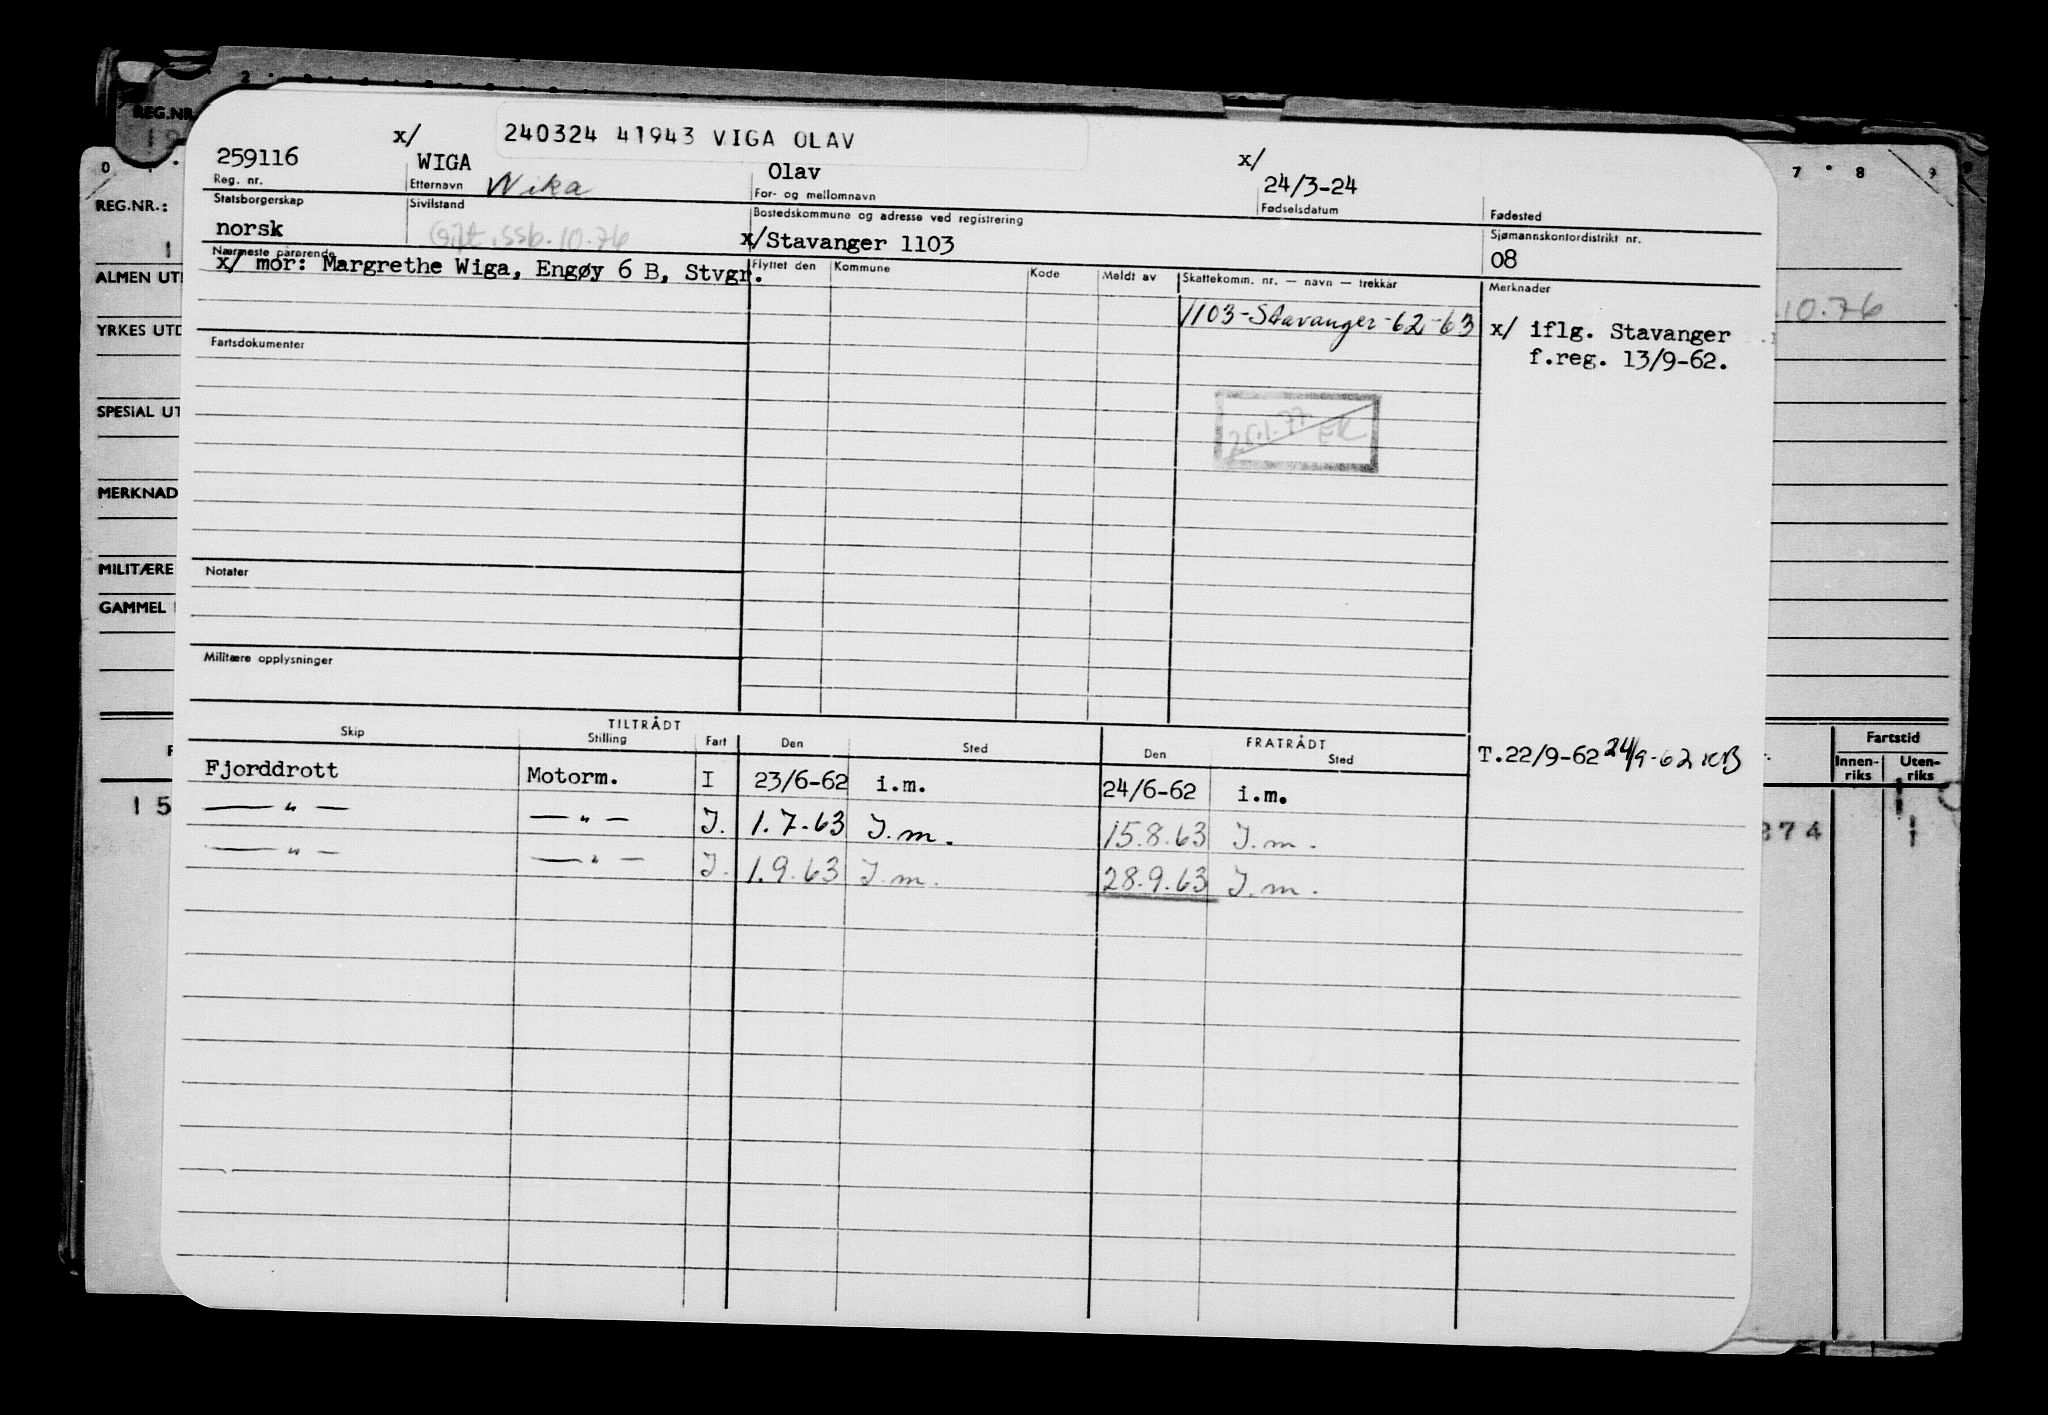 REG.NR.
x/ 240324 41943 VIGA OLAV
259116 WIGA Olav x/ 24/3-24
Reg. nr. Etternavn Wika For- og mellomnavn Fødselsdatum Fødested
Statsborgerskap Sivilstand Bostedskommune og adresse ved registrering Sjømannskontordistrikt nr.
norsk Gift, ssb. 10.76 x/Stavanger 1103 08
Nærmeste pårørende Flyttet den Kommune Kode Meldt av Skattekomm. nr. — navn — trekkår Merknader
x/ mor: Margrethe Wiga, Engøy 6 B, Stvgr.
1103-Stavanger-62-63 x/ iflg. Stavanger
f.reg. 13/9-62.
Fartsdokumenter
EK
Notater
Militære opplysninger
TILTRÅDT FRATRÅDT
Skip Stilling Fart Den Sted Den Sted
T.22/9-62 24/9-62 KB
Fjorddrott Motorm. I 23/6-62 i.m. 24/6-62 i.m.
— " — — " — I. 1.7.63 I.m. 15.8.63 I.m.
— " — — " — I. 1.9.63 I.m. 28.9.63 I.m.
0 7 8 9
REG.NR.:
1
ALMEN UT
10.76
YRKES UTD
SPESIAL UT
MERKNAD
MILITÆRE
GAMMEL
Fartstid
Innen-riks Uten-riks
15
274 1